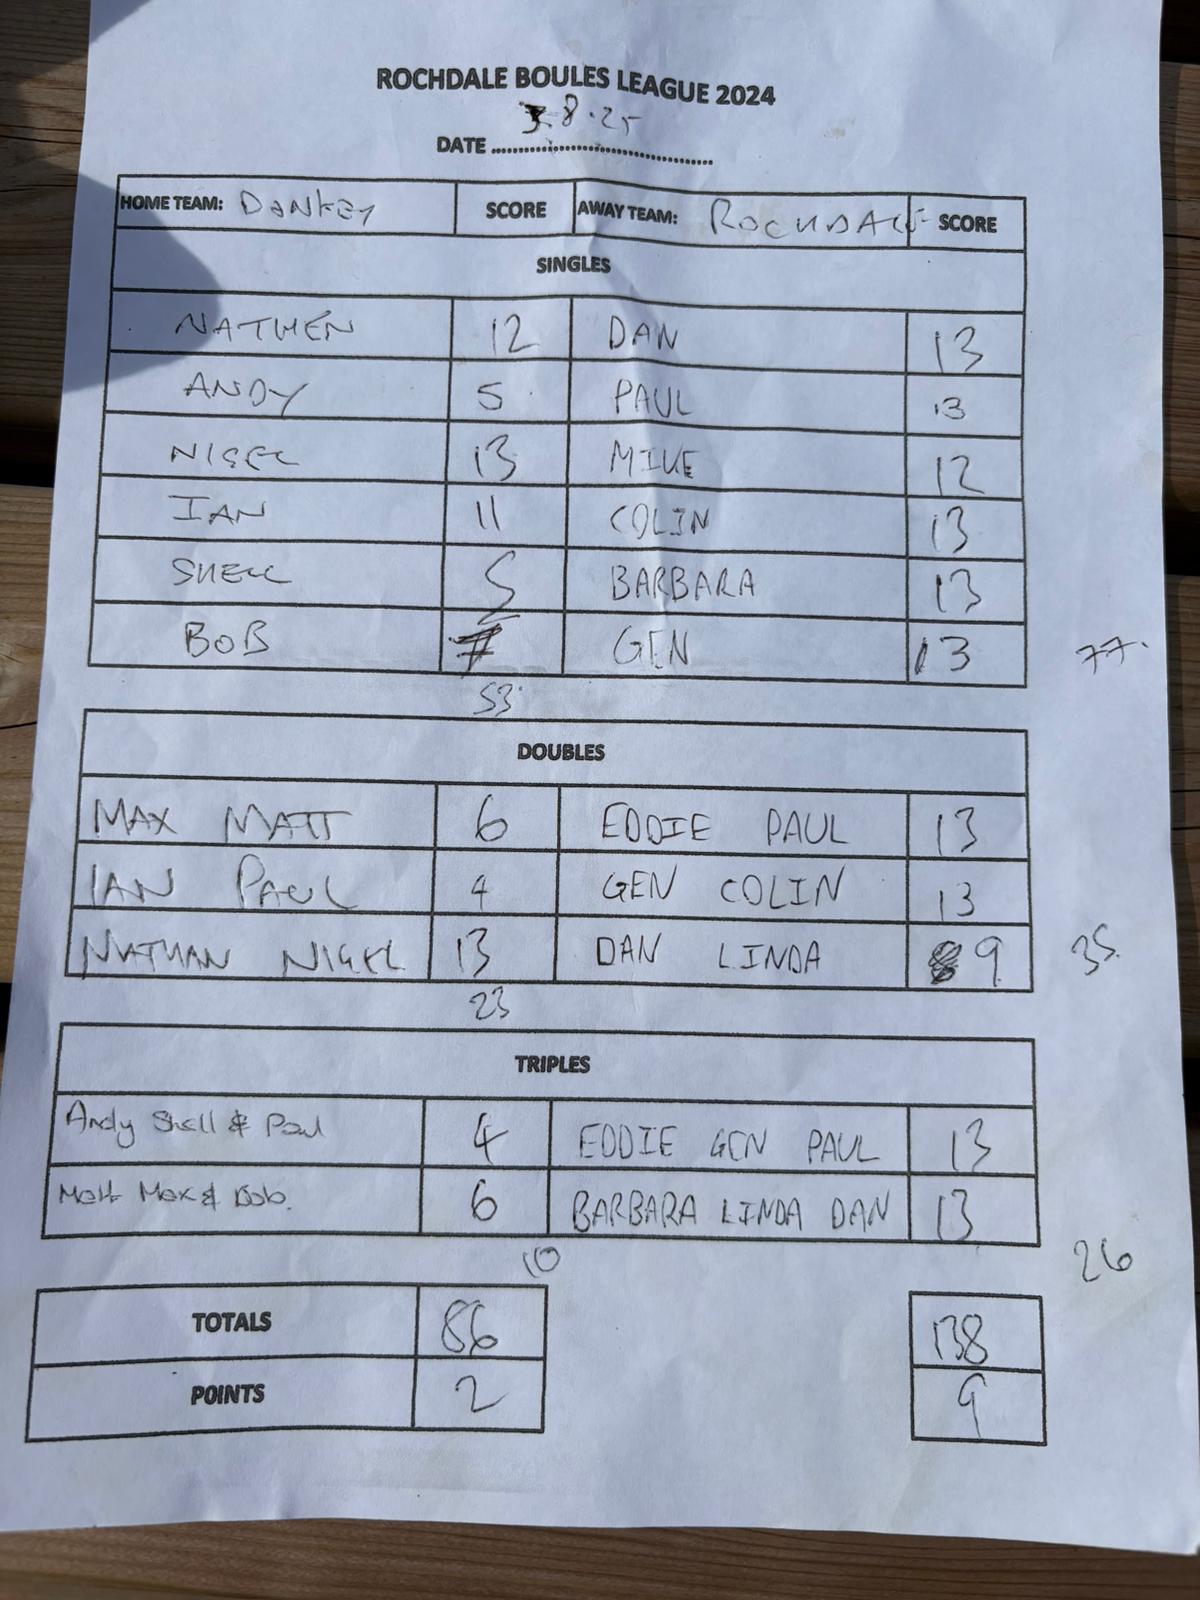 ROCHDALE BOULES LEAGUE 2024
DATE 3.8.25
HOME TEAM: DANKEY SCORE AWAY TEAM: ROCHDALE SCORE
SINGLES
NATHEN 12 DAN 13
ANDY 5 PAUL 13
NIGEL 13 MIKE 12
IAN 11 COLIN 13
SHELL 5 BARBARA 13
BOB 7 GEN 13 77.
53
DOUBLES
MAX MATT 6 EDDIE PAUL 13
IAN PAUL 4 GEN COLIN 13
NATHAN NIGEL 13 DAN LINDA 9 35
23
TRIPLES
Andy Shell & Paul 4 EDDIE GEN PAUL 13
Matt Max & Bob. 6 BARBARA LINDA DAN 13
10 26
TOTALS 86 138
POINTS 2 9